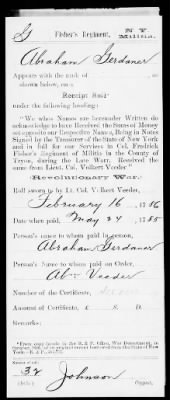 G Fisher's Regiment, N Y Militia.
Abraham Gerdaner
Appears with the rank of , on
shown below, on a
Receipt Roll
under the following heading:
"We whose Names are hereunder Written do
acknowledge to have Received the Sums of Money
set opposite our Respective Names, Being in Notes
Signed by the Treasurer of the State of New York
and in full for our Services in Col. Fredrick
Fisher's Regiment of Militia in the County of
Tryon, during the Late Warr. Received the same
from Lieut. Col. Volkert Veeder."
Revolutionary War:
Roll sworn to by Lt. Col. Volkert Veeder,
February 16, 1786
Date when paid, May 24, 1785
Person's name to whom paid in person,
Abraham Gerdaner
Person's name to whom paid on Order,
Abm Veeder
Number of the Certificate,
Amount of Certificate, £ S. D.
Remarks:
32 Johnson
Copyist.